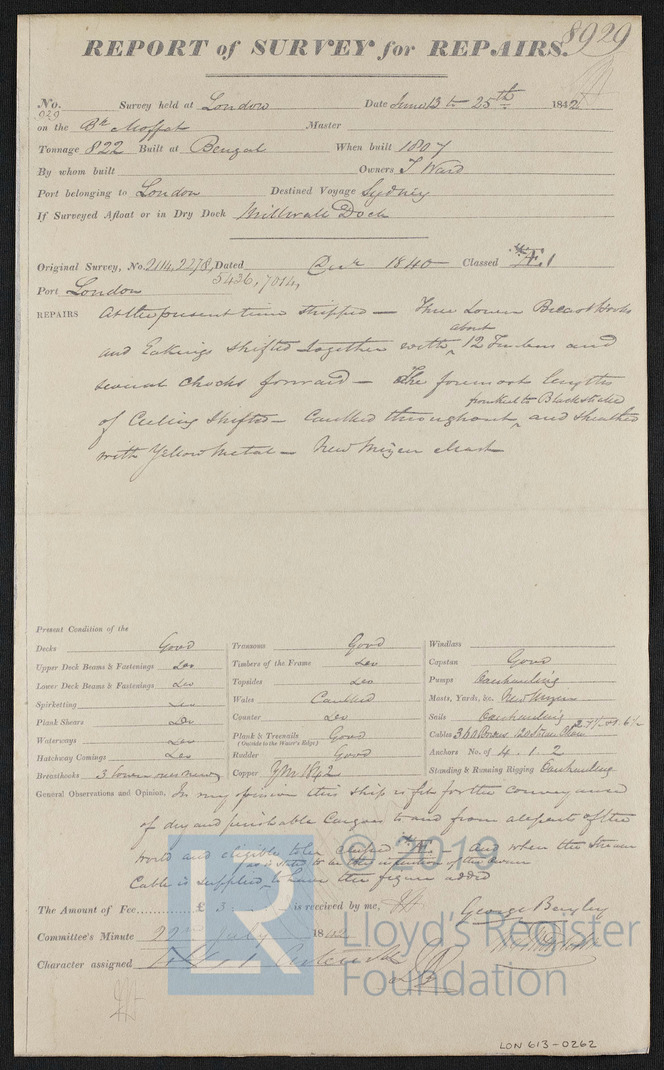 8929
REPORT of SURVEY for REPAIRS.
No. Survey held at London Date June 13 to 25th 1842
929
on the Bk Moffat Master
Tonnage 822 Built at Bengal When built 1807
By whom built Owners T Ward
Port belonging to London Destined Voyage Sydney
If Surveyed Afloat or in Dry Dock Millwall Dock
Original Survey, No. 2114, 2278, Dated 1840 Classed Æ 1
5426, 7014,
Port London
REPAIRS At the present time stripped — Three Lower Breast Hooks
about
and Eakings shifted together with 12 Timbers and
several chocks forward — The foremost lengths
from Keel to Blackstrake
of Ceiling shifted — Caulked throughout and sheathed
with Yellow Metal — New Mizen Mast
Present Condition of the
Decks Good
Upper Deck Beams & Fastenings Do
Lower Deck Beams & Fastenings Do
Spirketting Do
Plank Shears Do
Waterways Do
Hatchway Comings Do
Breasthooks 3 lower ones new
Transoms Good
Timbers of the Frame Do
Topsides Do
Wales Caulked
Counter Do
Plank & Treenails Good
(Outside to the Water's Edge)
Rudder Good
Copper YM 1842
Windlass
Capstan Good
Pumps Overhauling
Masts, Yards, &c. New Mizen
Sails Overhauling
Cables
Anchors No. of 4. 1. 2
Standing & Running Rigging Overhauling
General Observations and Opinion, In my opinion this ship is fit for the conveyance
of dry and perishable Cargoes to and from all parts of the
world and eligible to be classed Æ and when the Stream
as is stated to be the intention of the owner
Cable is supplied, to have the figure added
The Amount of Fee............ £ 3 : is received by me,
George Bayley
Committee's Minute 22nd July 18
Character assigned Æ 1
© 2019
LR
Lloyd's Register
Foundation
LON 613-0262